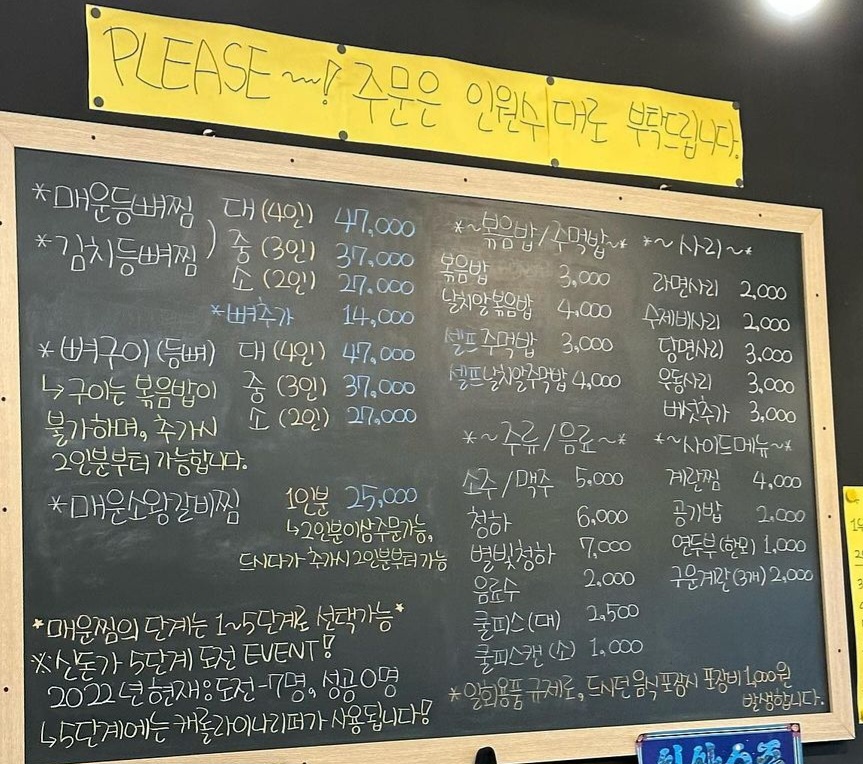 PLEASE~! 주문은 인원수대로 부탁드립니다.
*매운등뼈찜
*김치등뼈찜
) 대(4인) 47,000
중(3인) 37,000
소(2인) 27,000
*뼈추가 14,000
*뼈구이(등뼈) 대(4인) 47,000
중(3인) 37,000
소(2인) 27,000
↳구이는 볶음밥이
불가하며, 추가시
2인분부터 가능합니다.
*매운소왕갈비찜 1인분 25,000
↳2인분이상주문가능,
드시다가 추가시 2인분부터 가능
*매운찜의 단계는 1~5단계로 선택가능*
※신돈가 5단계 도전 EVENT!
2022년 현재: 도전-7명, 성공 0명
↳5단계에는 캐롤라이나리퍼가 사용됩니다!
*~볶음밥/주먹밥~*
볶음밥 3,000
날치알볶음밥 4,000
셀프주먹밥 3,000
셀프날치알주먹밥 4,000
*~주류/음료~*
소주/맥주 5,000
청하 6,000
별빛청하 7,000
음료수 2,000
쿨피스(대) 2,500
쿨피스캔(소) 1,000
*~사리~*
라면사리 2,000
수제비사리 2,000
당면사리 3,000
우동사리 3,000
버섯추가 3,000
*~사이드메뉴~*
계란찜 4,000
공기밥 2,000
연두부(한모) 1,000
구운계란(3개) 2,000
*일회용품 규제로, 드시던 음식 포장시 포장비 1,000원
발생합니다.